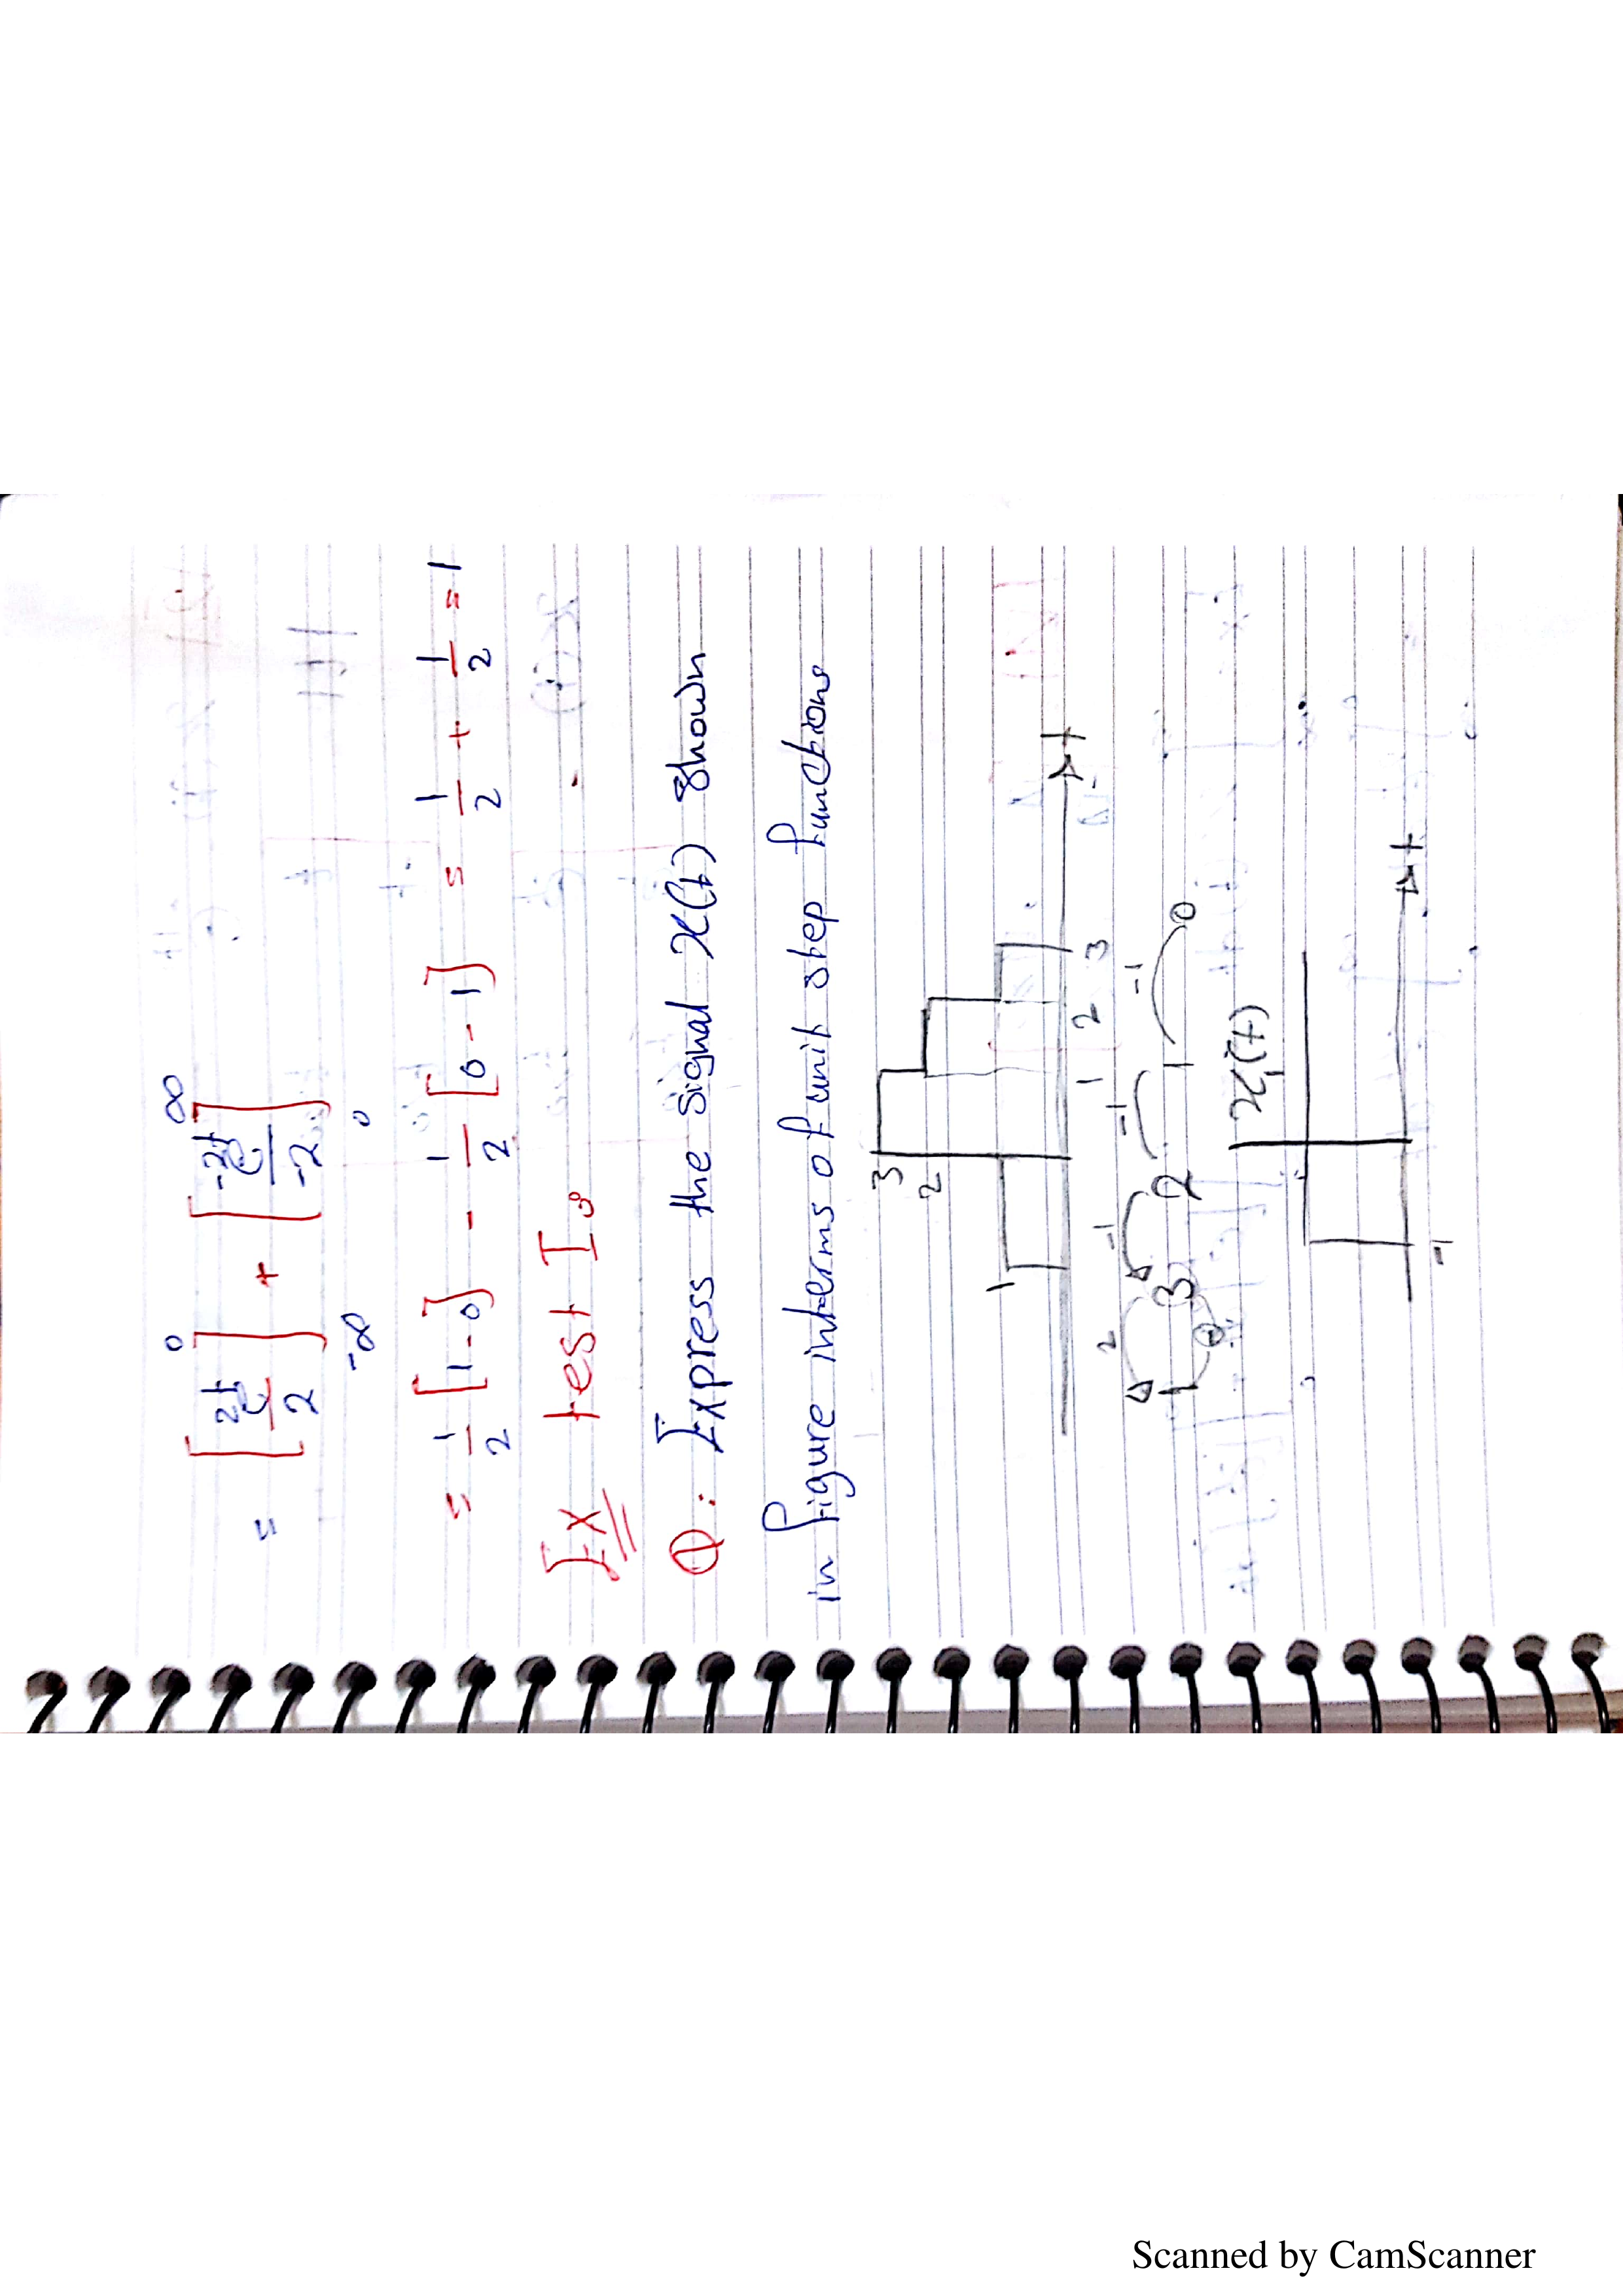 = [e^2t / 2]^0_-∞ + [e^-2t / -2]^∞_0
= 1/2 [1 - 0] - 1/2 [0 - 1] = 1/2 + 1/2 = 1
Ex test I:
Q: Express the signal x(t) shown
in figure interms of unit step functions
3
2
1
1 2 3 t
2 -1 -1 -1
1 3 2 1 0
2
x1(t)
-1 t
Scanned by CamScanner